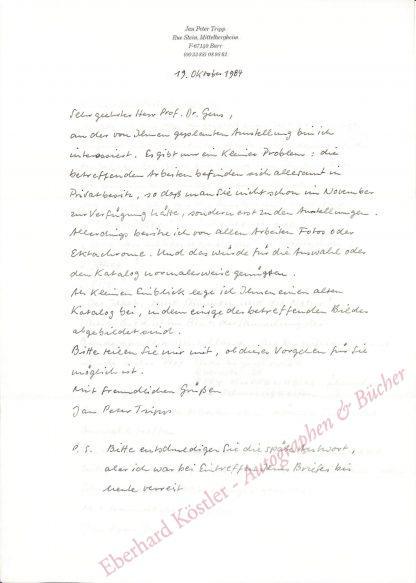 Jan Peter Tripp
Rue Stein, Mittelbergheim
F-67140 Barr
19. Oktober 1984
Sehr geehrter Herr Prof. Dr. Gens,
an der von Ihnen geplanten Ausstellung bin ich
interessiert. Es gibt nur ein kleines Problem: die
betreffenden Arbeiten befinden sich allesamt in
Privatbesitz, so daß man Sie nicht schon im November
zur Verfügung hätte, sondern erst zu den Austellungen.
Allerdings besitze ich von allen Arbeiten Fotos oder
Ektachrome. Und das würde für die Auswahl oder
den Katalog normalerweise genügen.
Als kleinen Einblick lege ich Ihnen einen alten
Katalog bei, in dem einige der betreffenden Bilder
abgebildet sind.
Bitte teilen Sie mir mit, ob dieses Vorgehen für Sie
möglich ist.
Mit freundlichen Grüßen
Jan Peter Tripp
P.S. Bitte entschuldigen Sie die späte Antwort,
aber ich war bei Eintreffen Ihres Briefes bis
heute verreist
Eberhard Köstler - Autographen & Bücher